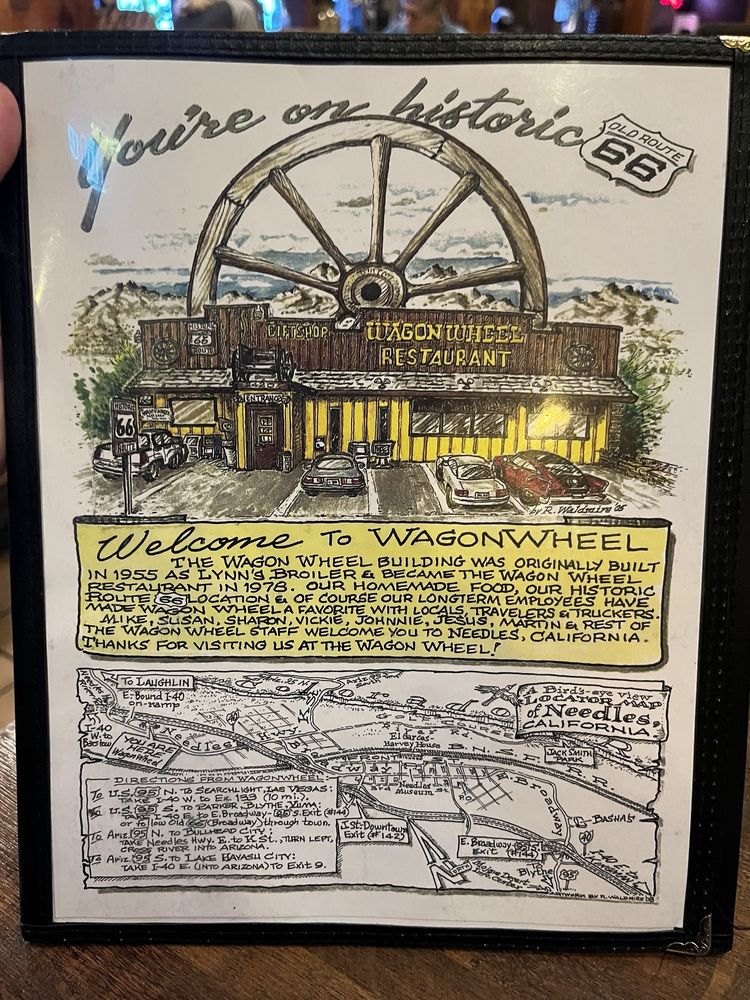 You're on historic
OLD ROUTE
66
GIFTSHOP
WAGON WHEEL
RESTAURANT
66
2420
ENTRANCE
66
ROUTE
by R. Waldmire '05
Welcome TO WAGONWHEEL
THE WAGON WHEEL BUILDING WAS ORIGINALLY BUILT
IN 1955 AS LYNN'S BROILER & BECAME THE WAGON WHEEL
RESTAURANT IN 1978. OUR HOMEMADE FOOD, OUR HISTORIC
ROUTE 66 LOCATION & OF COURSE OUR LONGTERM EMPLOYEES HAVE
MADE WAGON WHEEL A FAVORITE WITH LOCALS, TRAVELERS & TRUCKERS.
MIKE, SUSAN, SHARON, VICKIE, JOHNNIE, JESUS, MARTIN & REST OF
THE WAGON WHEEL STAFF WELCOME YOU TO NEEDLES, CALIFORNIA.
THANKS FOR VISITING US AT THE WAGON WHEEL!
TO LAUGHLIN
E-Bound I-40
on-ramp
A Bird's-eye view
LOCATOR MAP
of Needles,
CALIFORNIA
I-40
W. to
Barstow
YOU ARE
HERE
Wagon Wheel
Needles
HWY
El Garces
Harvey House
B.N.
JACK SMITH
PARK
Needles
Museum
Broadway
BASHA'S
J St-Downtown
Exit (#142)
E. Broadway
Exit (#144)
Blythe
95
ARTWORK BY R. WALDMIRE
DIRECTIONS FROM WAGONWHEEL
TO U.S. 95 N. TO SEARCHLIGHT, LAS VEGAS:
TAKE I-40 W. TO EX. 133 (10 mi.).
TO U.S. 95 S. TO PARKER, BLYTHE, YUMA:
TAKE I-40 E. to E. Broadway-95 S. Exit (#144)
or follow Old 66 (Broadway) through town.
To Ariz 95 N. TO BULLHEAD CITY:
TAKE Needles Hwy. E. to K St., TURN LEFT,
CROSS RIVER INTO ARIZONA.
To Ariz 95 S. TO LAKE HAVASU CITY:
TAKE I-40 E. (INTO ARIZONA) TO Exit 9.